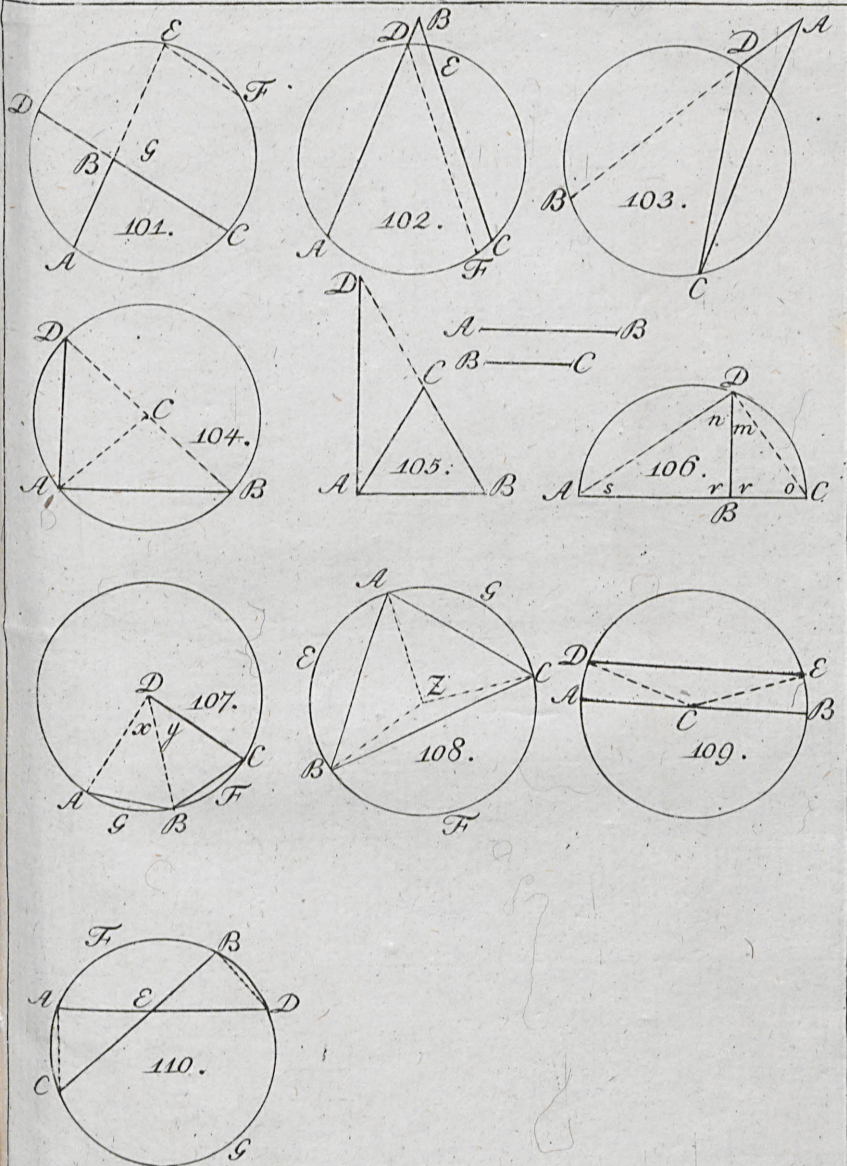 E
D
F
B
G
A
101.
C
D
B
E
A
102.
C
F
D
A
B
103.
C
D
C
104.
A
B
D
A B
B C
C
105.
A
B
D
n m
106.
A s r r o C
B
D
107.
x y
A
G
B
F
C
A
G
E
Z
C
B
108.
F
D
E
A
C
B
109.
F
B
A
E
D
C
110.
G